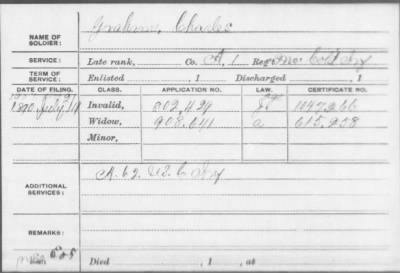 NAME OF SOLDIER: Graham, Charles
SERVICE: Late rank, Co. A, 1 Reg't Mo. Col'd Inf
TERM OF SERVICE: Enlisted , 1 Discharged , 1
DATE OF FILING. CLASS. APPLICATION NO. LAW. CERTIFICATE NO.
1890 July Invalid, 802,429 1047266
Widow, 908,641 a 615,258
Minor,
ADDITIONAL SERVICES: A. 62. U.S.C. Inf
REMARKS:
Died , 1 , at